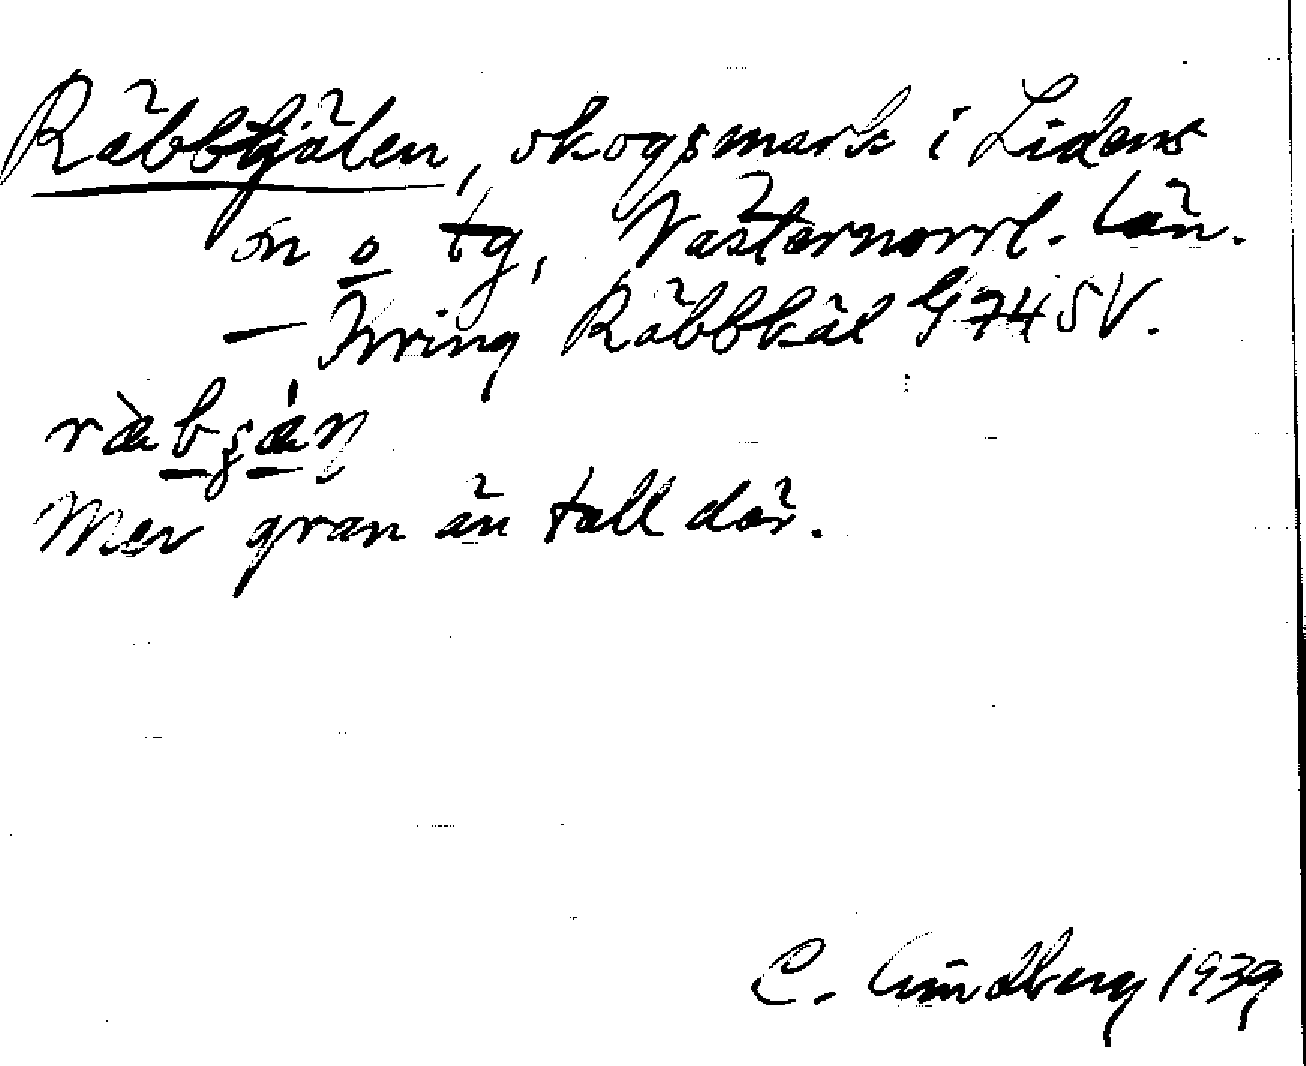 Räbbtjälen, skogsmark i Lidens
sn o tg, Västernorrl. län.
— Kring Räbbkäl G 74 SV.
Mer gran än tall där.
C. Lundberg 1939